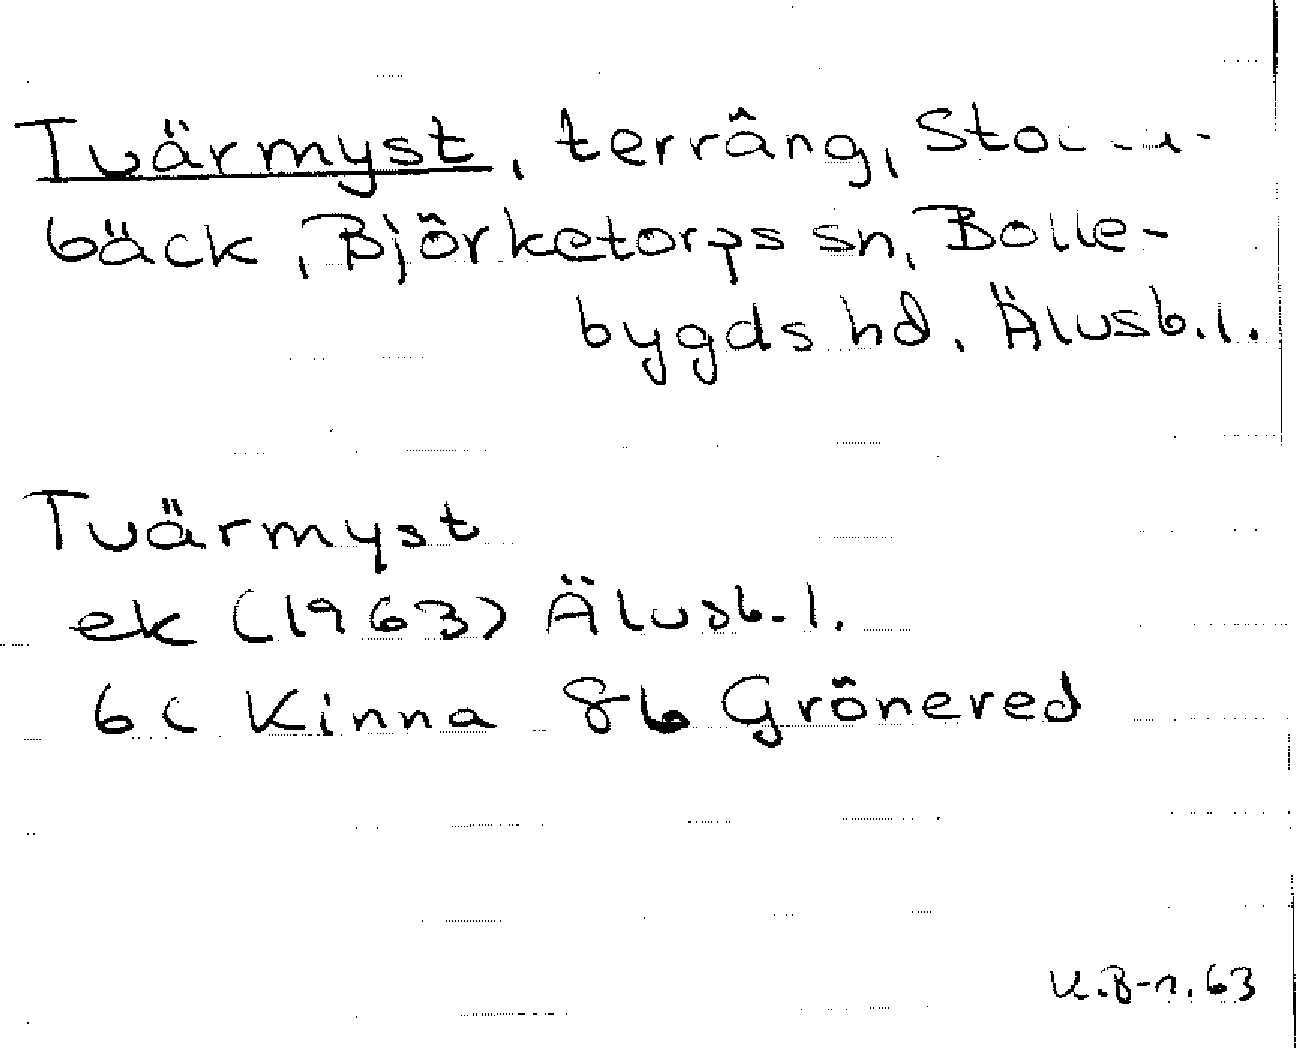 Tvärmyst, terräng,
bäck, Björketorps sn, Bolle-
bygds hd, Älvsb. l.
Tvärmyst
ek (1963) Älvsb. l.
6c Kinna 8b Grönered
K.B-n. 63